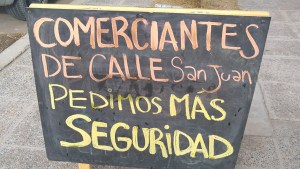 COMERCIANTES
DE CALLE San Juan
PEDIMOS MAS
SEGURIDAD